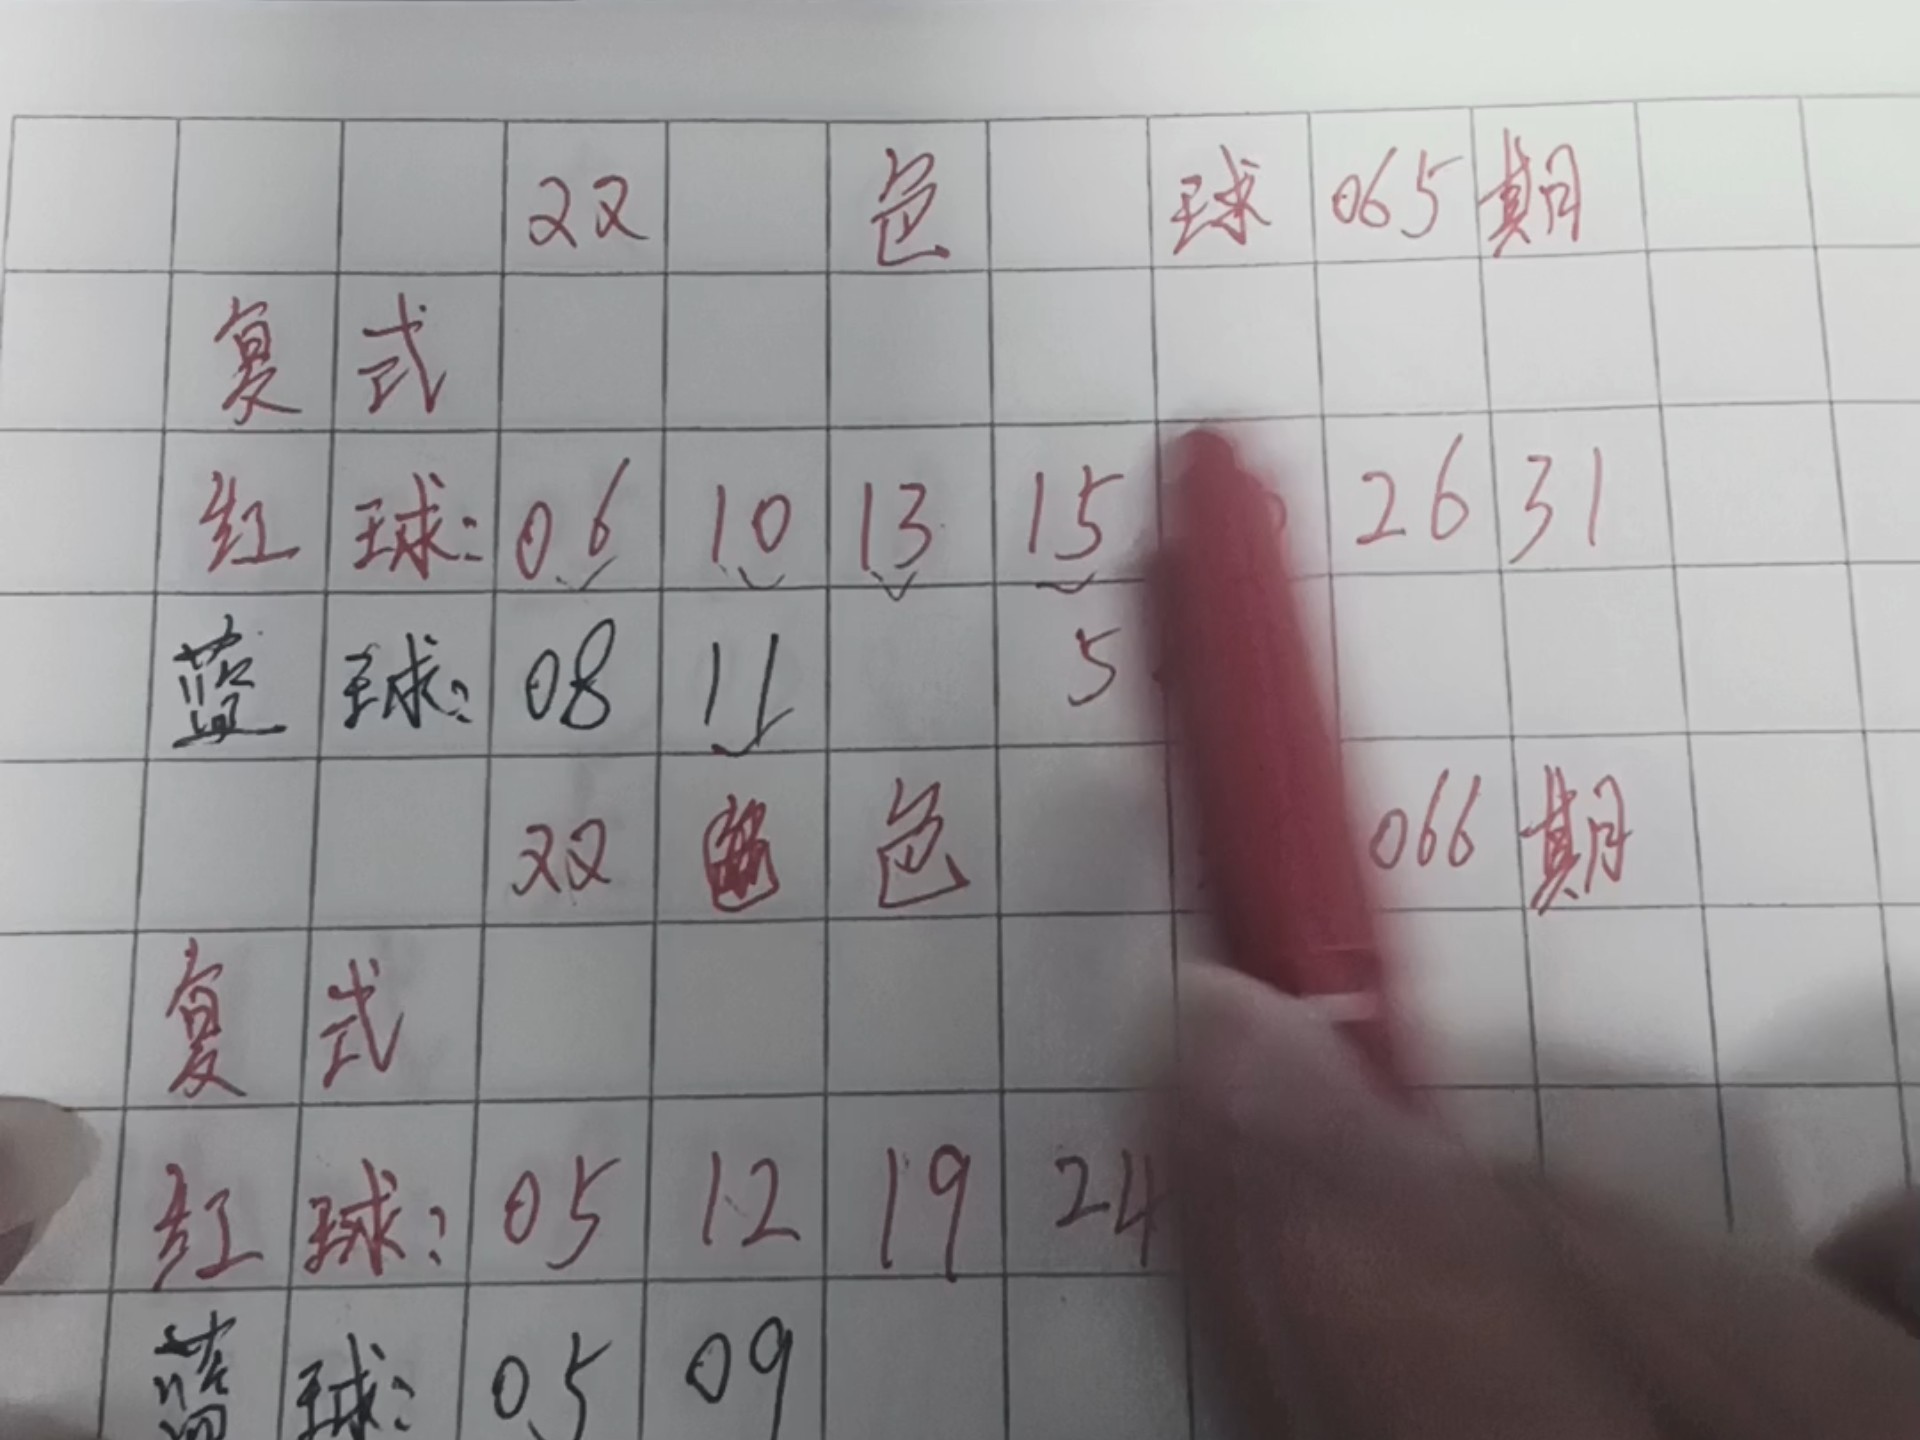 双 色 球 065 期
复 式
红 球: 06 10 13 15 26 31
蓝 球: 08 11 5
双 色 066 期
复 式
红 球: 05 12 19 24
蓝 球: 05 09